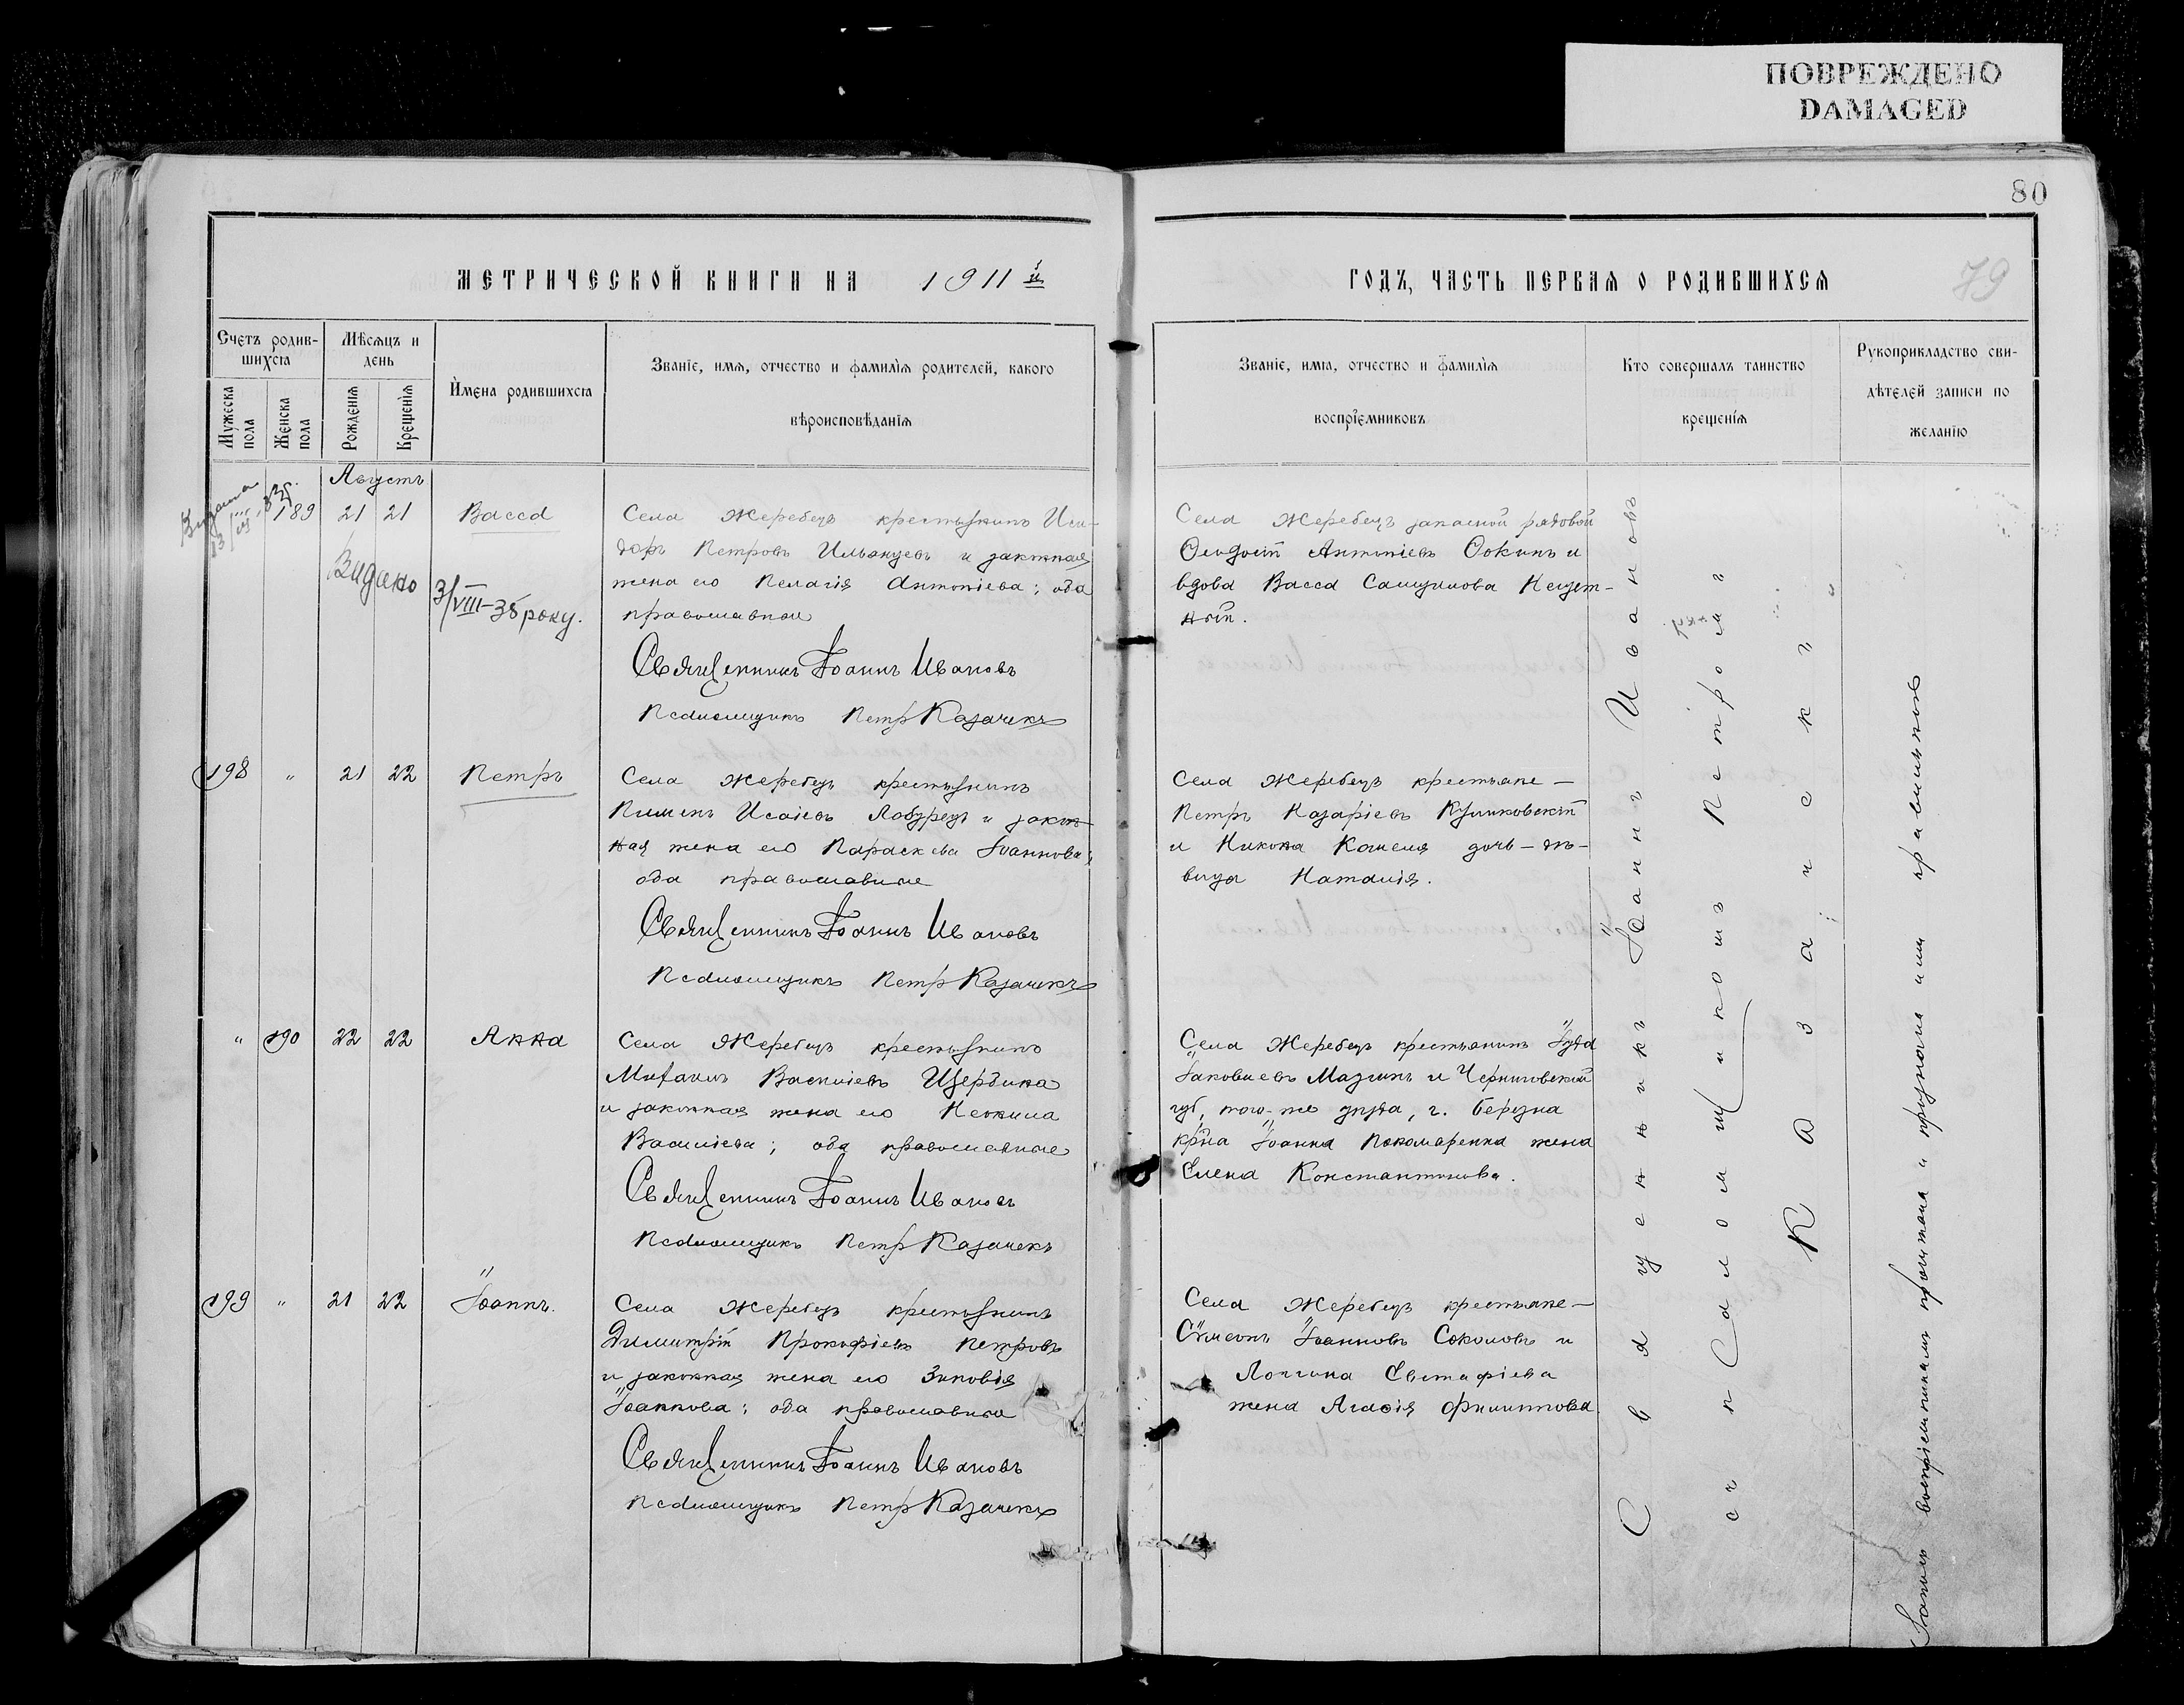 ПОВРЕЖДЕНО
DAMAGED
80
79
МЕТРИЧЕСКОЙ КНИГИ НА 1911й
ГОДЪ, ЧАСТЬ ПЕРВАЯ О РОДИВШИХСЯ
Счетъ родив-
шихся
Мѣсяцъ и
день
Имена родившихся
Званіе, имя, отчество и фамилія родителей, какого
вѣроисповѣданія
Мужеска
пола
Женска
пола
Рожденія
Крещенія
Званіе, имя, отчество и фамилія
воспріемниковъ
Кто совершалъ таинство
крещенія
Рукоприкладство сви-
дѣтелей записи по
желанію
Августъ
189 21 21 Васса
Видано
3/VIII-38 року.
Села Жеребецъ крестьянинъ Иси-
доръ Петровъ и законная
жена его Пелагія Антоніева; оба
православные
Священникъ Іоаннъ Ивановъ
Псаломщикъ Петръ Казачекъ
Села Жеребецъ запасной рядовой
Антоніевъ и
вдова Васса
198 " 21 22 Петръ
Села Жеребецъ крестьянинъ
Пименъ Исаіевъ Лобурецъ и закон-
ная жена его Параскева Іоаннова;
оба православные
Священникъ Іоаннъ Ивановъ
Псаломщикъ Петръ Казачекъ
Села Жеребецъ крестьяне —
Петръ Назаріевъ Куликовскій
и Никона дочь — дѣ-
вица Наталія.
" 190 22 22 Анна
Села Жеребецъ крестьянинъ
Михаилъ Василіевъ Щербина
и законная жена его
Василіева; оба православные
Священникъ Іоаннъ Ивановъ
Псаломщикъ Петръ Казачекъ
Села Жеребецъ крестьянинъ Іуда
Іаковлевъ Мазинъ и Черниговской
губ., того-же уѣзда, г. Березна
кр̃на Іоанна Пономаренка жена
Елена Константинова.
199 " 21 22 Іоаннъ.
Села Жеребецъ крестьянинъ
Димитрій Прокофіевъ Петровъ
и законная жена его Зиновія
Іоаннова; оба православные
Священникъ Іоаннъ Ивановъ
Псаломщикъ Петръ Казачекъ
Села Жеребецъ крестьяне —
Сѵмеонъ Іоанновъ Соколовъ и
Логгина Евстафіева
жена Агафія Филиппова
Священникъ Іоаннъ Ивановъ
съ псаломщикомъ Петромъ
Казачекъ
Запись воспріемникамъ прочитана и признана ими правильною